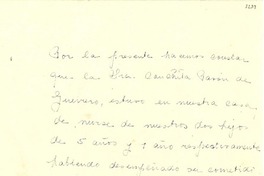 Por la presente hacemos constar
que la Sra. Conchita Pavón de
Guerrero, estuvo en nuestra casa
de nurse de nuestros dos hijos
de 5 años y 1 año respectivamente
habiendo desempeñado su cometido